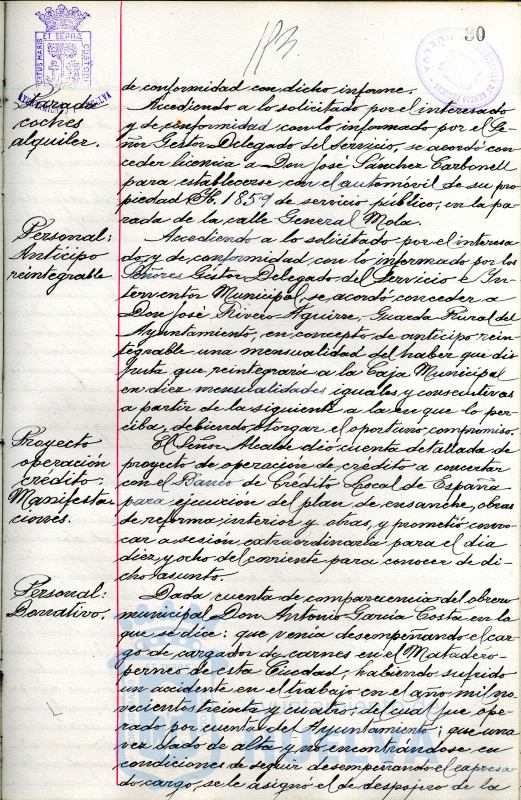 30
183
PORTUS MARIS ET TERRÆ CUSTODIA
AYUNTAMIENTO DE HUELVA
de conformidad con dicho informe.
Parada
coches
alquiler.
Accediendo a lo solicitado por el interesado
y de conformidad con lo informado por el Se-
ñor Gestor Delegado del Servicio, se acordó con
ceder licencia a Don José Sánchez Carbonell
para establecerse con el automóvil de su pro
piedad H. 1859 de servicio público, en la pa-
rada de la calle General Mola.
Personal:
Anticipo
reintegrable
Accediendo a lo solicitado por el interesa
do, y de conformidad con lo informado por los
Señores Gestor Delegado del Servicio e In-
terventor Municipal, se acordó conceder a
Don José Rivero Aguirre, Guarda Rural del
Ayuntamiento, en concepto de anticipo rein-
tegrable una mensualidad del haber que dis
fruta que reintegrará a la Caja Municipal
en diez mensualidades iguales y consecutivas
a partir de la siguiente a la en que lo per-
ciba, debiendo otorgar el oportuno compromiso.
Proyecto
operación
crédito:
Manifesta
ciones.
El Señor Alcalde dió cuenta detallada de
proyecto de operación de crédito a concertar
con el Banco de Crédito Local de España
para ejecución del plan de ensanche, obras
de reforma interior y otras, y prometió convo-
car a sesión extraordinaria para el día
diez y ocho del corriente para conocer de di-
cho asunto.
Personal:
Donativo.
Dada cuenta de comparecencia del obrero
municipal Don Antonio García Costa en la
que se dice: que venía desempeñando el car-
go de cargador de carnes en el Matadero
perneo de esta Ciudad, habiendo sufrido
un accidente en el trabajo con el año mil no-
vecientos treinta y cuatro, del cual fue ope-
rado por cuenta del Ayuntamiento; que una
vez dado de alta y no encontrándose en
condiciones de seguir desempeñando el expresa
do cargo, se le asignó el de despojero de la
Ayuntamiento de
HUELVA